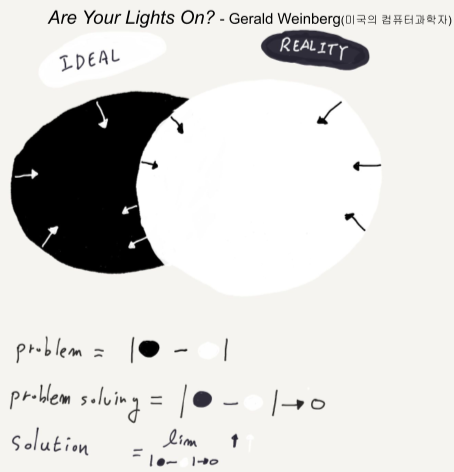 Are Your Lights On? - Gerald Weinberg(미국의 컴퓨터과학자)
IDEAL
REALITY
problem = |● - ●|
problem solving = |● - ●|→0
solution = lim ↑ ↑
|●-●|→0